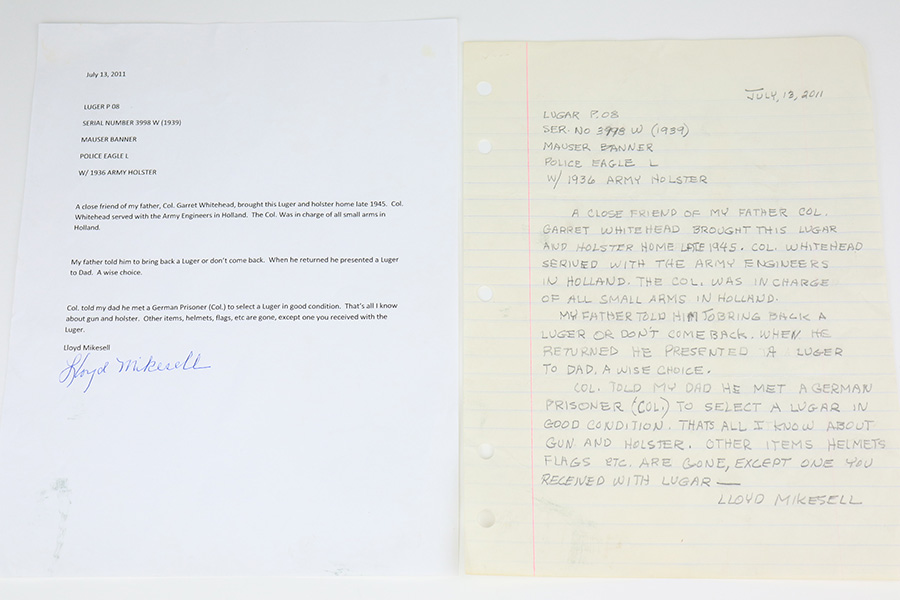 July 13, 2011
LUGER P 08
SERIAL NUMBER 3998 W (1939)
MAUSER BANNER
POLICE EAGLE L
W/ 1936 ARMY HOLSTER
A close friend of my father, Col. Garret Whitehead, brought this Luger and holster home late 1945.  Col.
Whitehead served with the Army Engineers in Holland.  The Col. Was in charge of all small arms in
Holland.
My father told him to bring back a Luger or don't come back.  When he returned he presented a Luger
to Dad.  A wise choice.
Col. told my dad he met a German Prisoner (Col.) to select a Luger in good condition.  That's all I know
about gun and holster.  Other items, helmets, flags, etc are gone, except one you received with the
Luger.
Lloyd Mikesell
Lloyd Mikesell
JULY, 13, 2011
LUGAR P.08
SER. NO 3998 W (1939)
MAUSER BANNER
POLICE EAGLE L
W/ 1936 ARMY HOLSTER
A CLOSE FRIEND OF MY FATHER COL.
GARRET WHITEHEAD BROUGHT THIS LUGAR
AND HOLSTER HOME LATE 1945. COL. WHITEHEAD
SERIVED WITH THE ARMY ENGINEERS
IN HOLLAND. THE COL. WAS IN CHARGE
OF ALL SMALL ARMS IN HOLLAND.
MY FATHER TOLD HIM TO BRING BACK A
LUGER OR DON'T COME BACK. WHEN HE
RETURNED HE PRESENTED A LUGER
TO DAD. A WISE CHOICE.
COL. TOLD MY DAD HE MET A GERMAN
PRISONER (COL.) TO SELECT A LUGAR IN
GOOD CONDITION. THATS ALL I KNOW ABOUT
GUN AND HOLSTER. OTHER ITEMS HELMETS
FLAGS ETC. ARE GONE, EXCEPT ONE YOU
RECEIVED WITH LUGAR —
LLOYD MIKESELL